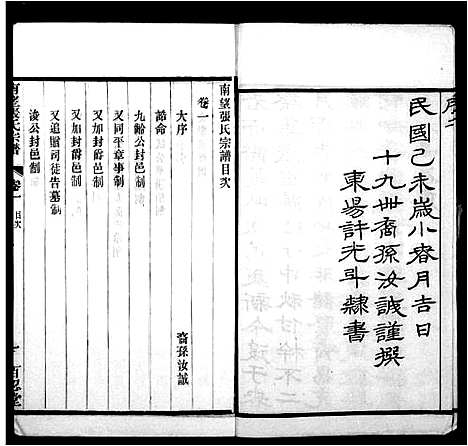 民國己未歲小春月吉日
十九世裔孫汝誠謹撰
東場許光斗隸書
南望張氏宗譜目次
卷一
大序 裔孫汝誠
誥命
九齡公封邑制
又同平章事制
又加封爵邑制
又加封爵邑制
又追贈司徒告墓制
浚公封邑制
南望張氏宗譜 卷一 目次 一 百忍堂